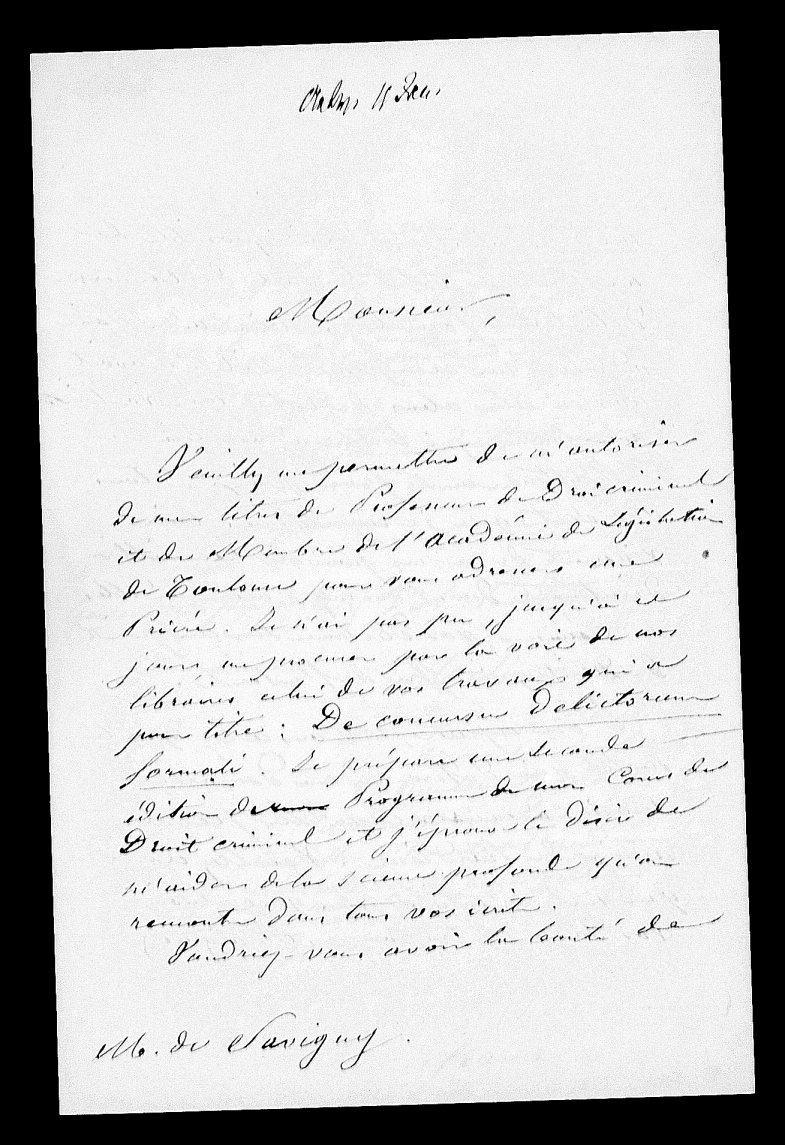 Monsieur,
Veuillez me permettre de m'autoriser
de mes titres de Professeur de Droit criminel
et de Membre de l'Académie de Législation
de Toulouse pour vous adresser une
Prière. Je n'ai pas pu, jusqu'à ce
jour me procurer par la voie de nos
libraires celui de vos travaux qui a
pour titre : De concursu Delictorum
formali. Je prépare une seconde
édition de mon Programme de mon Cours de
Droit criminel et j'éprouve le désir de
m'aider de la science profonde qu'on
rencontre dans tous vos écrits.
Voudriez-vous avoir la bonté de
M. de Savigny.